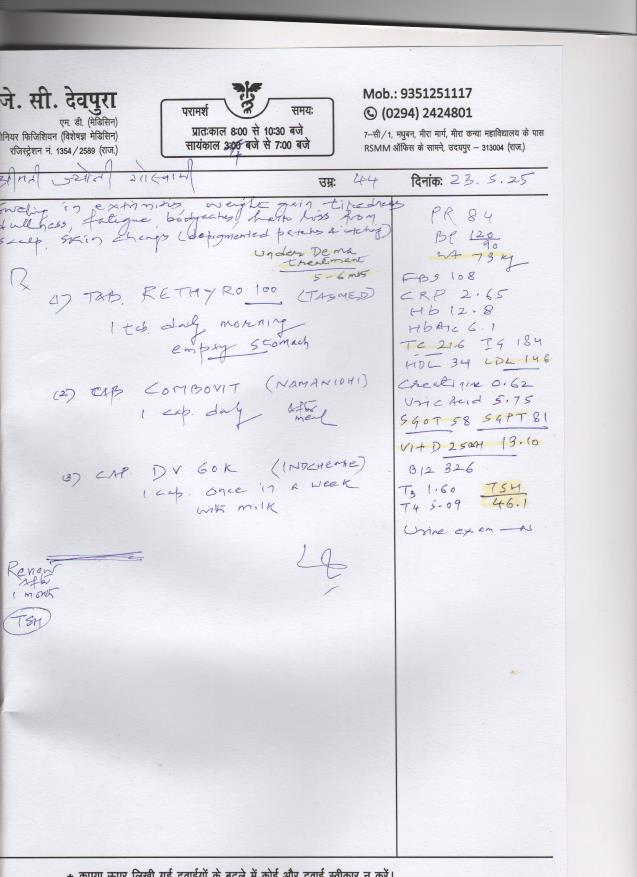 जे. सी. देवपुरा
एम. डी. (मेडिसिन)
नियर फिजिशियन (विशेषज्ञ मेडिसिन)
रजिस्ट्रेशन नं. 1354/2589 (राज.)
परामर्श समयः
प्रातःकाल 8:00 से 10:30 बजे
सायंकाल 3:00 बजे से 7:00 बजे
Mob.: 9351251117
(0294) 2424801
7-सी/1, मधुबन, मीरा मार्ग, मीरा कन्या महाविद्यालय के पास
RSMM ऑफिस के सामने, उदयपुर - 313004 (राज.)
श्रीमती ज्योती गोस्वामी
उम्रः 44
दिनांकः 23.5.25
in extremities weight gain, tiredness
dullness, fatigue bodyaches, hair loss from
scalp, skin changes (depigmented patches & itching)
under Derma
treatment
5-6 mths
Rx
1) TAB. RETHYRO 100 (TASMED)
1 tab. daily morning
empty stomach
(2) CAP COMBOVIT (NAMANIDHI)
1 cap. daily after meal
3) CAP. DV 60K (INDCHEMIE)
1 cap. once in a week
with milk
Review
after
1 month
TSH
PR 84
BP 120/90
73 kg
FBS 108
CRP 2.65
Hb 12.8
HbA1c 6.1
TC 216 TG 184
HDL 34 LDL 146
Creatinine 0.62
Uric Acid 5.75
SGOT 58 SGPT 81
Vit D 25OH 13.10
B12 326
T3 1.60 TSH
T4 5.09 46.1
Urine exam - N
* कृपया ऊपर लिखी गई दवाईयों के बदले में कोई और दवाई स्वीकार न करें।